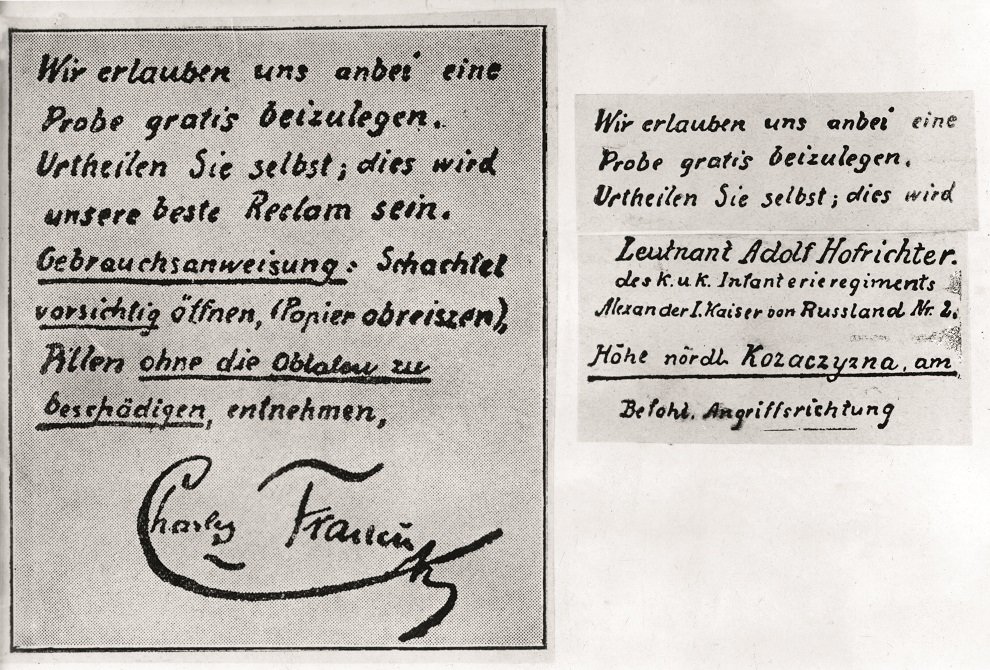 Wir erlauben uns anbei eine
Probe gratis beizulegen.
Urtheilen Sie selbst; dies wird
unsere beste Reclam sein.
Gebrauchsanweisung: Schachtel
vorsichtig öffnen, (Papier abreiszen),
Pillen ohne die Oblaten zu
beschädigen, entnehmen,
Charles Francis
Wir erlauben uns anbei eine
Probe gratis beizulegen.
Urtheilen Sie selbst; dies wird
Leutnant Adolf Hofrichter.
des k. u. k. Infanterieregiments
Alexander I. Kaiser von Russland Nr. 2.
Höhe nördl. Kozaczyzna, am
Befohl. Angriffsrichtung